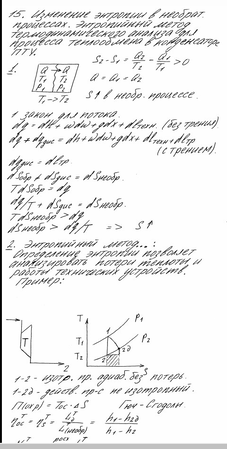 15. Изменение энтропии в необрат.
процессах. Энтропийный метод
термодинамического анализа для
процесса теплообмена в конденсаторе
ПТУ.
1.
a a
P1 P1
T1 -> T2
S2 - S1 = a/T2 - a/T1 > 0
a = a1 = a2
S↑ в необр. процессе.
1 закон для потока.
dq = dh + wdw + gdx + dlтехн. (без трения)
dq + dqдис = dh + wdw + gdx + dlтехн + dlтр
(с трением).
dqдис = dlтр.
dSобр + dSдис = dSнеобр.
TdSобр = dq
dq/T + dSдис = dSнеобр.
TdSнеобр > dq
dSнеобр > dq/T => S↑
2. Энтропийный метод...:
Определение энтропии позволяет
анализировать потери теплоты и
работы технических устройств.
Пример:
T
2
T
P1
P2
1
2
2д
S
1-2 - изотр. пр. адиаб. без потерь.
1-2д - действ. пр-с не изотропный.
П(окр) = Tос·ΔS Гюи-Стодоли.
h1 - h2д
h1 - h2